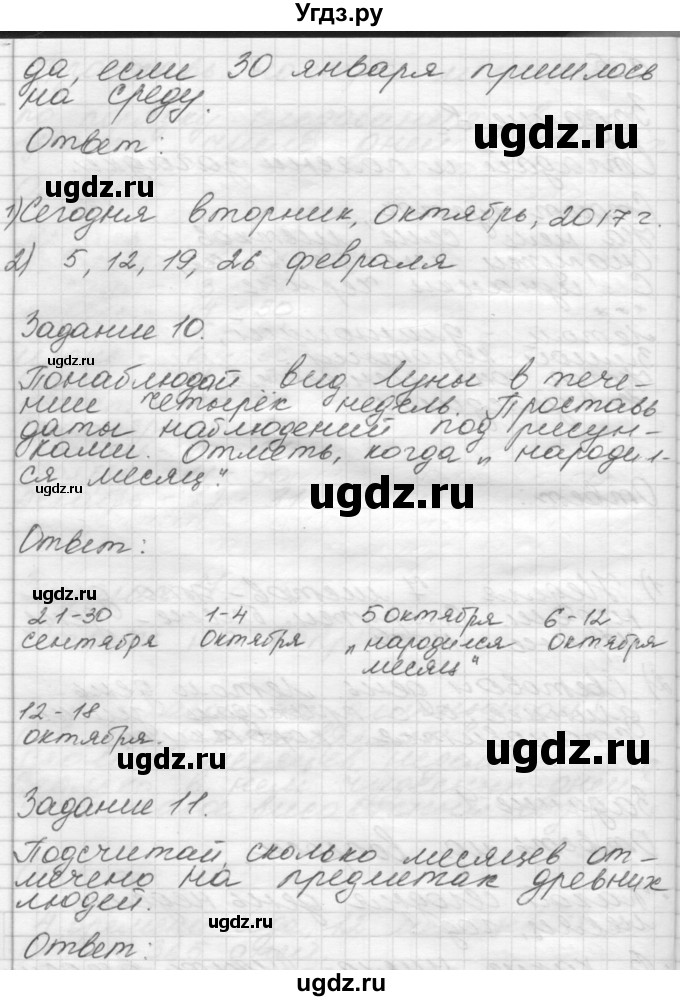 Угдз.ру
да, если 30 января пришлось
на среду.
Ответ:
ugdz.ru
ugdz.ru
1) Сегодня вторник, октябрь, 2017 г.
2) 5, 12, 19, 26 февраля
Задание 10.
ugdz.ru
Понаблюдай вид Луны в тече-
нии четырёх недель. Проставь
даты наблюдений под рисун-
ками. Отметь, когда „народил-
ся месяц".
ugdz.ru
ugdz.ru
Ответ:
ugdz.ru
21-30 1-4 5 октября 6-12
сентября октября „народился октября
месяц"
12-18
октября.
ugdz.ru
ugdz.ru
Задание 11.
Подсчитай, сколько месяцев от-
мечено на предметах древних
людей.
ugdz.ru
Ответ:
ugdz.ru